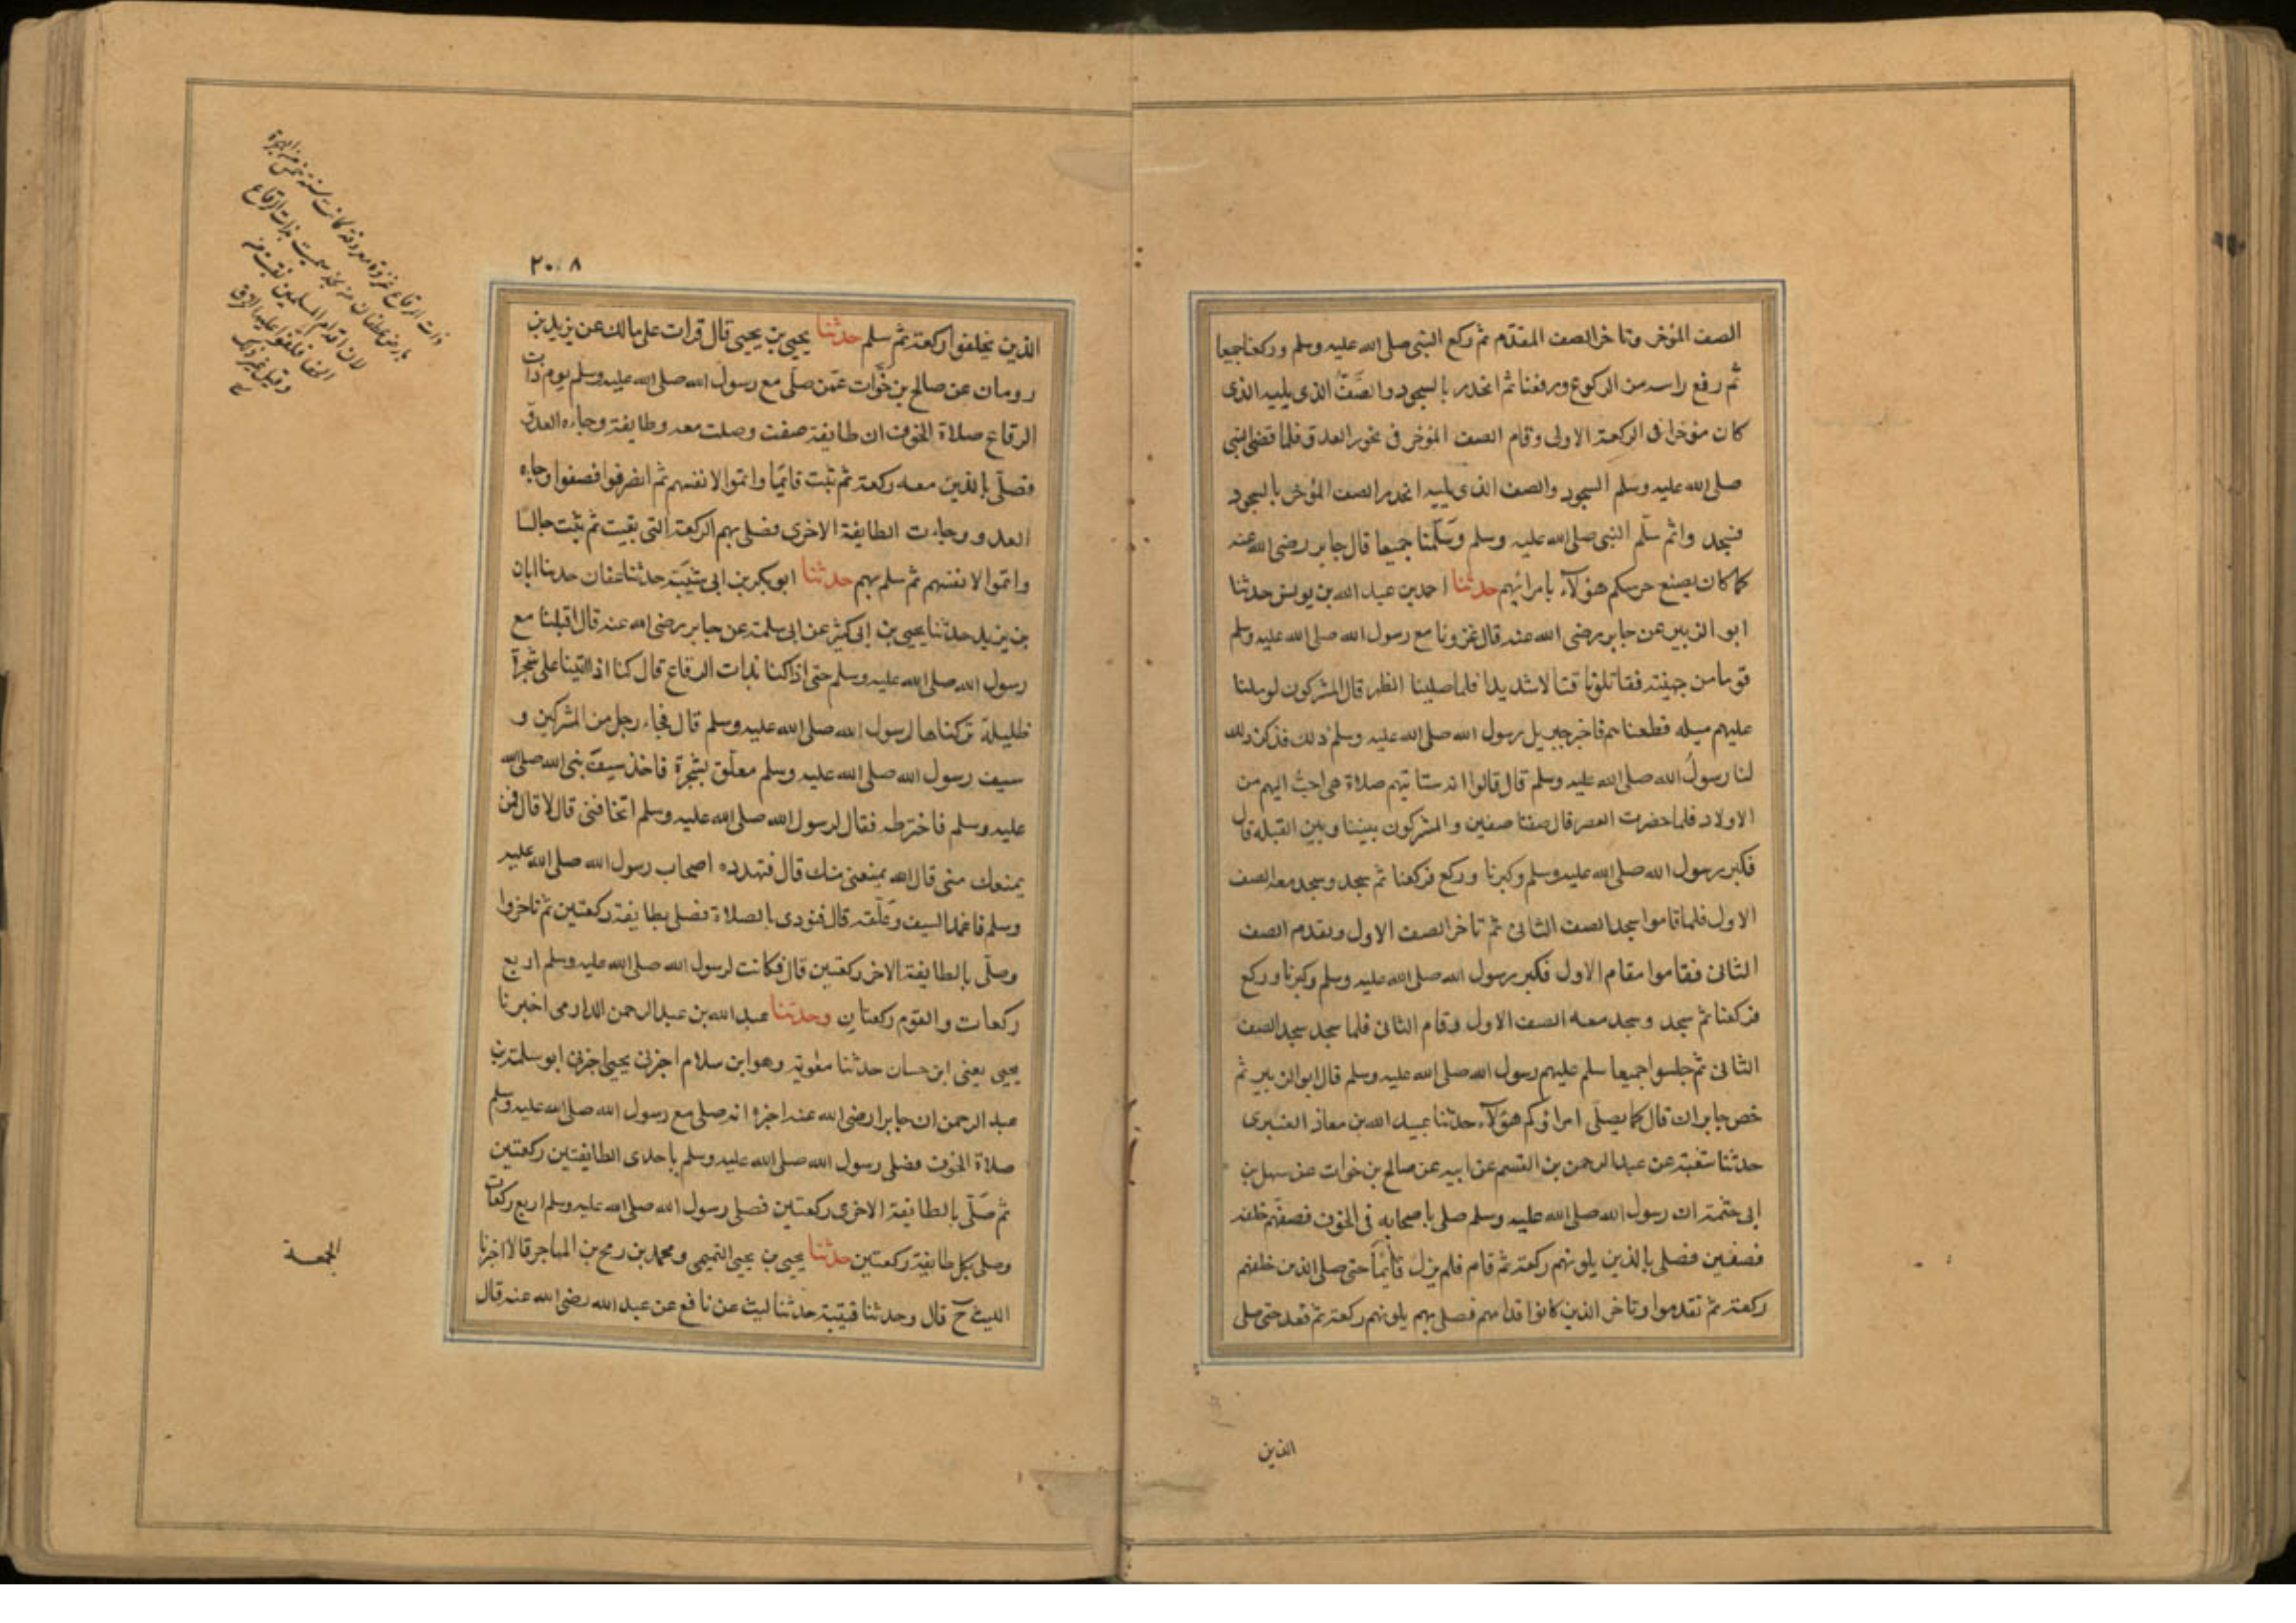 الصف المؤخر وتاخر الصف المقدم ثم ركع النبى صلى الله عليه وسلم وركعنا جميعا
ثم رفع راسه من الركوع ورفعنا ثم انحدر بالسجود والصف الذى يليه الذى
كان مؤخرا فى الركعة الاولى وقام الصف المؤخر فى نحور العدو فلما قضى النبى
صلى الله عليه وسلم السجود والصف الذى يليه انحدر الصف المؤخر بالسجود
فسجدوا ثم سلم النبى صلى الله عليه وسلم وسلمنا جميعا قال جابر رضى الله عنه
كما كان يصنع حرسكم هؤلآء بامرائهم حدثنا احمد بن عبد الله بن يونس حدثنا
ابو الزبير عن جابر رضى الله عنه قال غزونا مع رسول الله صلى الله عليه وسلم
قوما من جهينة فقاتلونا قتالا شديدا فلما صلينا الظهر قال المشركون لو ملنا
عليهم ميلة قطعناهم فاخبر جبريل رسول الله صلى الله عليه وسلم ذلك فذكر ذلك
لنا رسول الله صلى الله عليه وسلم قال قالوا انه ستاتيهم صلاة هى احب اليهم من
الاولاد فلما حضرت العصر قال صفنا صفين والمشركون بيننا وبين القبلة قال
فكبر رسول الله صلى الله عليه وسلم وكبرنا وركع فركعنا ثم سجد وسجد معه الصف
الاول فلما قاموا سجد الصف الثانى ثم تاخر الصف الاول وتقدم الصف
الثانى فقاموا مقام الاول فكبر رسول الله صلى الله عليه وسلم وكبرنا وركع
فركعنا ثم سجد وسجد معه الصف الاول وقام الثانى فلما سجد سجد الصف
الثانى ثم جلسوا جميعا سلم عليهم رسول الله صلى الله عليه وسلم قال ابو الزبير ثم
خص جابر ان قال كما يصلى امراؤكم هؤلآء حدثنا عبيد الله بن معاذ العنبرى
حدثنا شعبة عن عبد الرحمن بن القسم عن ابيه عن صالح بن خوات عن سهل بن
ابى حثمة ان رسول الله صلى الله عليه وسلم صلى باصحابه فى الخوف فصفهم خلفه
فصفين فصلى بالذين يلونهم ركعة ثم قام فلم يزل قائما حتى صلى الذين خلفهم
ركعة ثم تقدموا وتاخر الذين كانوا قدامهم فصلى بهم يلونهم ركعة ثم قعد حتى صلى
الذين
٢٠٨
الذين تخلفوا ركعة ثم سلم حدثنا يحيى بن يحيى قال قرات على مالك عن يزيد بن
رومان عن صالح بن خوات عمن صلى مع رسول الله صلى الله عليه وسلم يوم ذات
الرقاع صلاة الخوف ان طايفة صفت وصلت معه وطايفة وجاه العدو
فصلى بالذين معه ركعة ثم ثبت قائما واتموا لانفسهم ثم انصرفوا فصفوا وجاه
العدو وجاءت الطايفة الاخرى فصلى بهم الركعة التى بقيت ثم ثبت جالسا
واتموا لانفسهم ثم سلم بهم حدثنا ابو بكر بن ابى شيبة حدثنا عفان حدثنا ابان
بن يزيد حدثنا يحيى بن ابى كثير عن ابى سلمة عن جابر رضى الله عنه قال اقبلنا مع
رسول الله صلى الله عليه وسلم حتى اذا كنا بذات الرقاع قال كنا اذا اتينا على شجرة
ظليلة تركناها لرسول الله صلى الله عليه وسلم قال فجاء رجل من المشركين و
سيف رسول الله صلى الله عليه وسلم معلق بشجرة فاخذ سيف نبى الله صلى الله
عليه وسلم فاخترطه فقال لرسول الله صلى الله عليه وسلم اتخافنى قال لا قال فمن
يمنعك منى قال الله يمنعنى منك قال فتهدده اصحاب رسول الله صلى الله عليه
وسلم فاغمد السيف وعلقه قال فنودى بالصلاة فصلى بطايفة ركعتين ثم تاخروا
وصلى بالطايفة الاخر ركعتين قال فكانت لرسول الله صلى الله عليه وسلم اربع
ركعات وللقوم ركعتان وحدثنا عبد الله بن عبد الرحمن الدارمى اخبرنا
يحيى يعنى ابن حسان حدثنا معوية وهو ابن سلام اخبرنى يحيى اخبرنى ابو سلمة بن
عبد الرحمن ان جابرا رضى الله عنه اخبره انه صلى مع رسول الله صلى الله عليه وسلم
صلاة الخوف فصلى رسول الله صلى الله عليه وسلم باحدى الطايفتين ركعتين
ثم صلى بالطايفة الاخرى ركعتين فصلى رسول الله صلى الله عليه وسلم اربع ركعات
وصلى بكل طايفة ركعتين حدثنا يحيى بن يحيى التميمى ومحمد بن رمح بن المهاجر قالا اخبرنا
الليث ح قال وحدثنا قتيبة حدثنا ليث عن نافع عن عبد الله رضى الله عنه قال
ذات الرقاع غزوة معروفة كانت سنة خمس من الهجرة
بارض غطفان من نجد سميت بذات الرقاع
لان اقدام المسلمين نقبت من
الحفا فلفوا عليها الخرق
وقيل غير ذلك
الجمعة